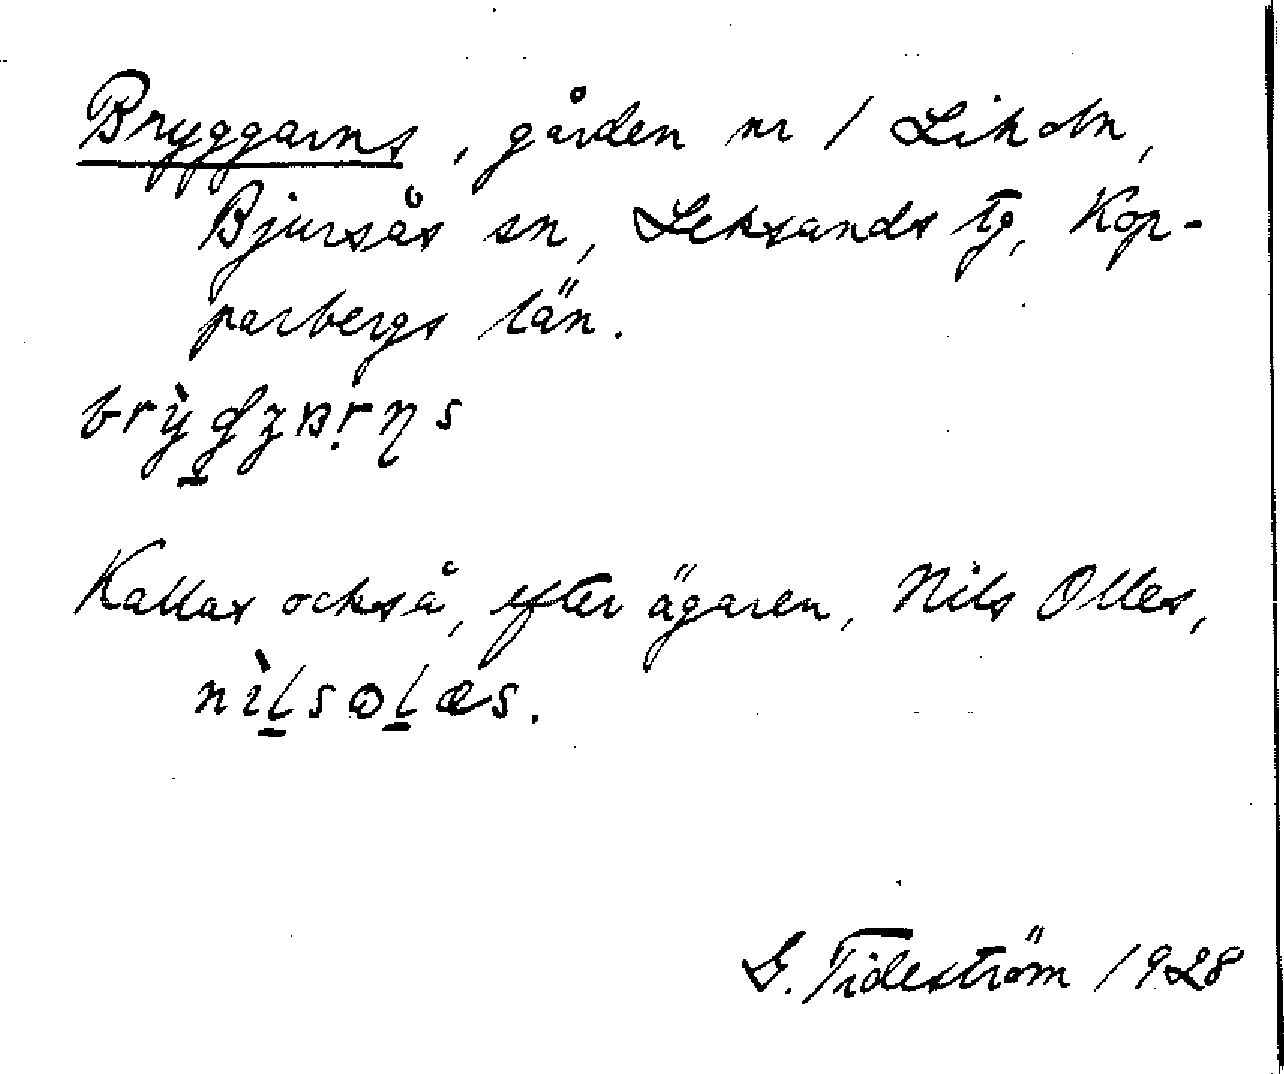 Bryggarns, gården nr 1 Lisholn,
Bjursås sn, Leksands tg, Kop-
parbergs län.
Kallas också, efter ägaren, Nils Olles,
G. Tideström 1928